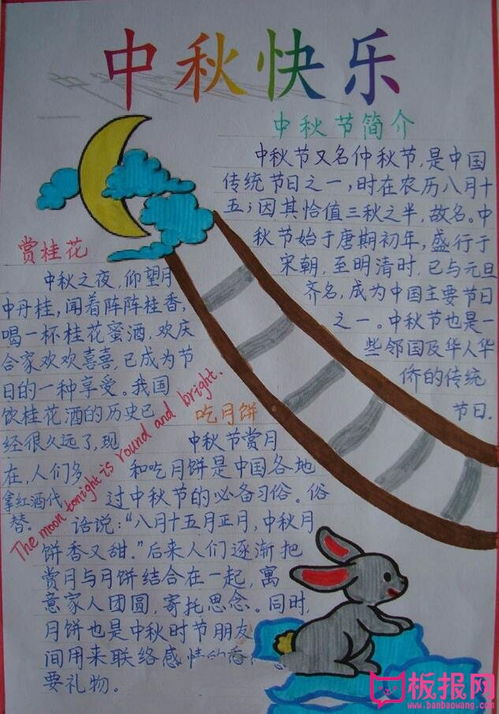 中秋快乐
中秋节简介
中秋节又名仲秋节,是中国
传统节日之一,时在农历八月十
五;因其恰值三秋之半,故名。中
秋节始于唐期初年,盛行于
宋朝,至明清时,已与元旦
齐名,成为中国主要节日
之一。中秋节也是一
些邻国及华人华
侨的传统
节日.
赏桂花
中秋之夜,仰望月
中丹桂,闻着阵阵桂香,
喝一杯桂花蜜酒,欢庆
合家欢欢喜喜,已成为节
日的一种享受。我国
饮桂花酒的历史已
经很久远了,现
在,人们多
拿红酒代
替。
The moon tonight is round and bright.
吃月饼
中秋节赏月
和吃月饼是中国各地
过中秋节的必备习俗。俗
话说:“八月十五月正月,中秋月
饼香又甜.”后来人们逐渐把
赏月与月饼结合在一起,寓
意家人团圆,寄托思念。同时,
月饼也是中秋时节朋友
间用来联络感情的
要礼物。
板报网
www.banbaowang.com